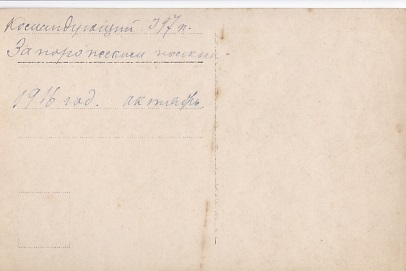 Командующий 397 п.
Запорожским полком
1916 год. октябрь